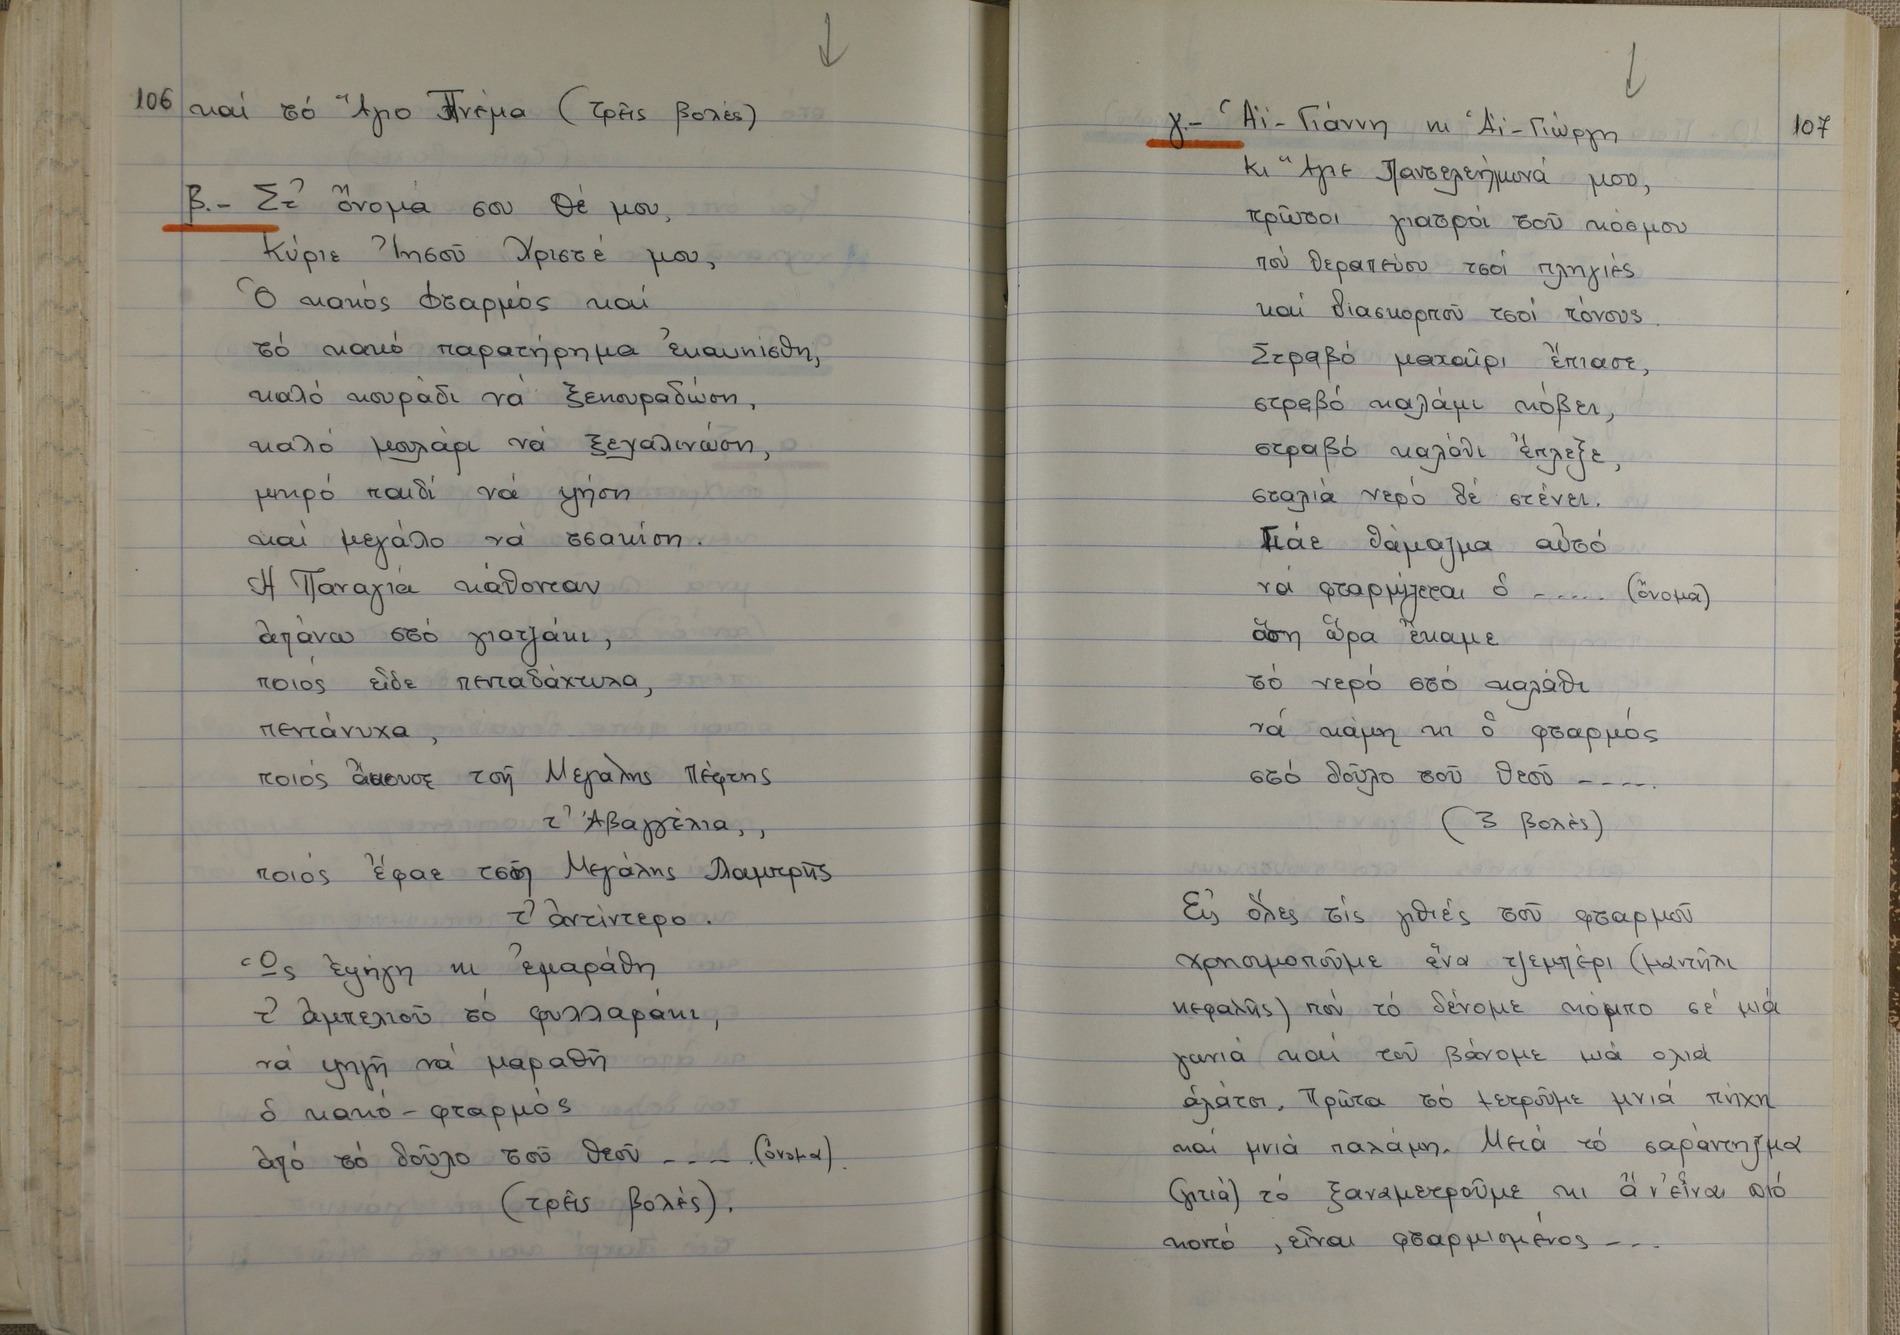 106 καί τό Ἅγιο Πνέμα (τρεῖς βολές)
β.- Στ' ὄνομά σου Θέ μου,
Κύριε Ἰησοῦ Χριστέ μου,
Ὁ κακός φταρμός καί
τό κακό παρατήρημα ἐκαυκίσθη,
καλό κουράδι νά ξεκουραδώση,
καλό μουλάρι νά ξεγαλινώση,
μικρό παιδί νά ψήση
καί μεγάλο νά τσακίση.
Ἡ Παναγιά κάθονταν
ἀπάνω στό γιατζάκι,
ποιός εἶδε πενταδάχτυλα,
πεντάνυχα,
ποιός ἄκουσε τσῆ Μεγάλης Πέφτης
τ' Ἀβαγγέλια,,
ποιός ἔφαε τσῆ Μεγάλης Λαμπρῆς
τ' ἀντίντερο.
Ὡς ἐψήγη κι ἐμαράθη
τ' ἀμπελιοῦ τό φυλλαράκι,
νά ψηγῆ νά μαραθῆ
ὁ κακό-φταρμός
ἀπό τό δοῦλο τοῦ Θεοῦ ---- (ὄνομα).
(τρεῖς βολές).
107
γ.- Ἁϊ-Γιάννη κι Ἁϊ-Γιώργη
κι Ἅγιε Παντελεήμονά μου,
πρῶτοι γιατροί τοῦ κόσμου
πού θεραπεύου τσοί πληγιές
καί διασκορποῦ τσοί πόνους.
Στραβό μαχαῖρι ἔπιασε,
στραβό καλάμι κόβει,
στραβό καλάθι ἔπλεξε,
σταλιά νερό δέ στένει.
Πιάε θάμαγμα αὐτό
νά φταρμίζεται ὁ ------ (ὄνομα)
ὅση ὥρα ἔκαμε
τό νερό στό καλάθι
νά κάμη κι ὁ φταρμός
στό δοῦλο τοῦ Θεοῦ ----.
(3 βολές)
Εἰς ὅλες τίς γιθιές τοῦ φταρμοῦ
χρησιμοποῦμε ἕνα τζεμπέρι (μαντήλι
κεφαλῆς) πού τό δένομε κόμπο σέ μιά
γωνιά καί τοῦ βάνομε μιά ολιά
ἀλάτσι. Πρῶτα τό μετροῦμε μνιά πήχη
καί μνιά παλάμη. Μετά τό σαράντηγμα
(γιτιά) τό ξαναμετροῦμε κι ἄ ν' εἶναι πιό
κοντό, εἶναι φταρμισμένος ---.